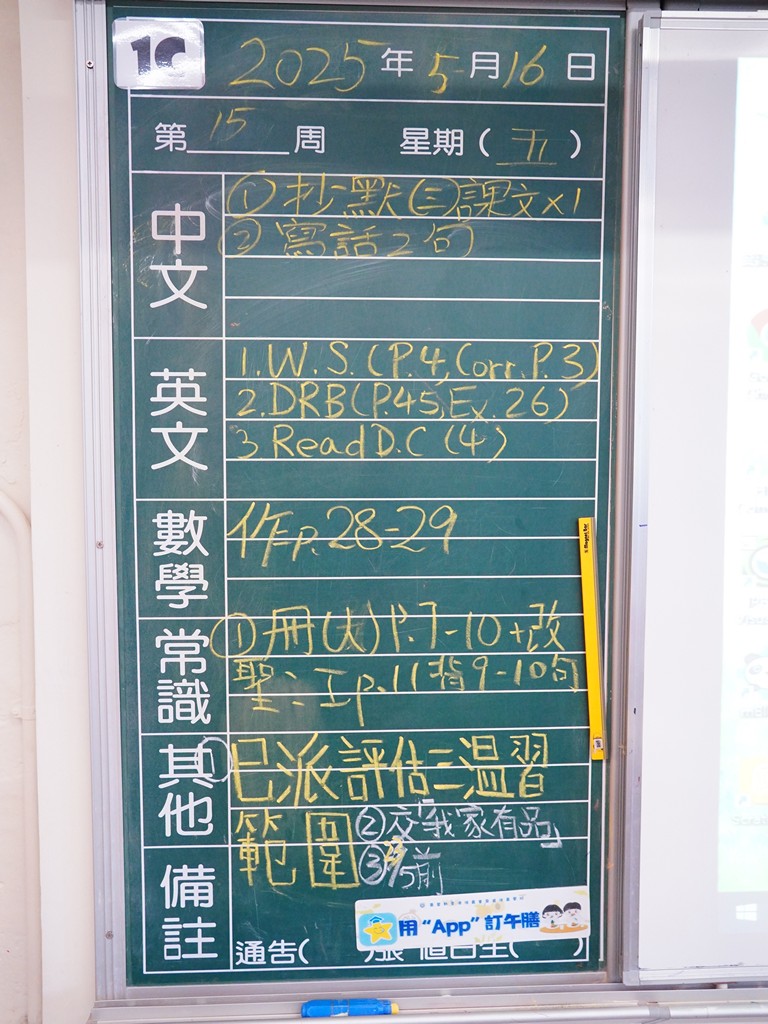 1C
2025年5月16日
第15周 星期(五)
中文
①抄:默(三)課文×1
②寫話2句
英文
1.W.S.(P.4,Corr.P.3)
2.DRB(P.45,Ex.26)
3 Read D.C (4)
數學
作p.28-29
常識
①冊(大)P.7-10+改
聖:工p.11背9-10句
其他
①已派評估三溫習
範圍②交「我家有品」
③ 23/5前
備註
用“App”訂午膳
通告( )張 值日生( )